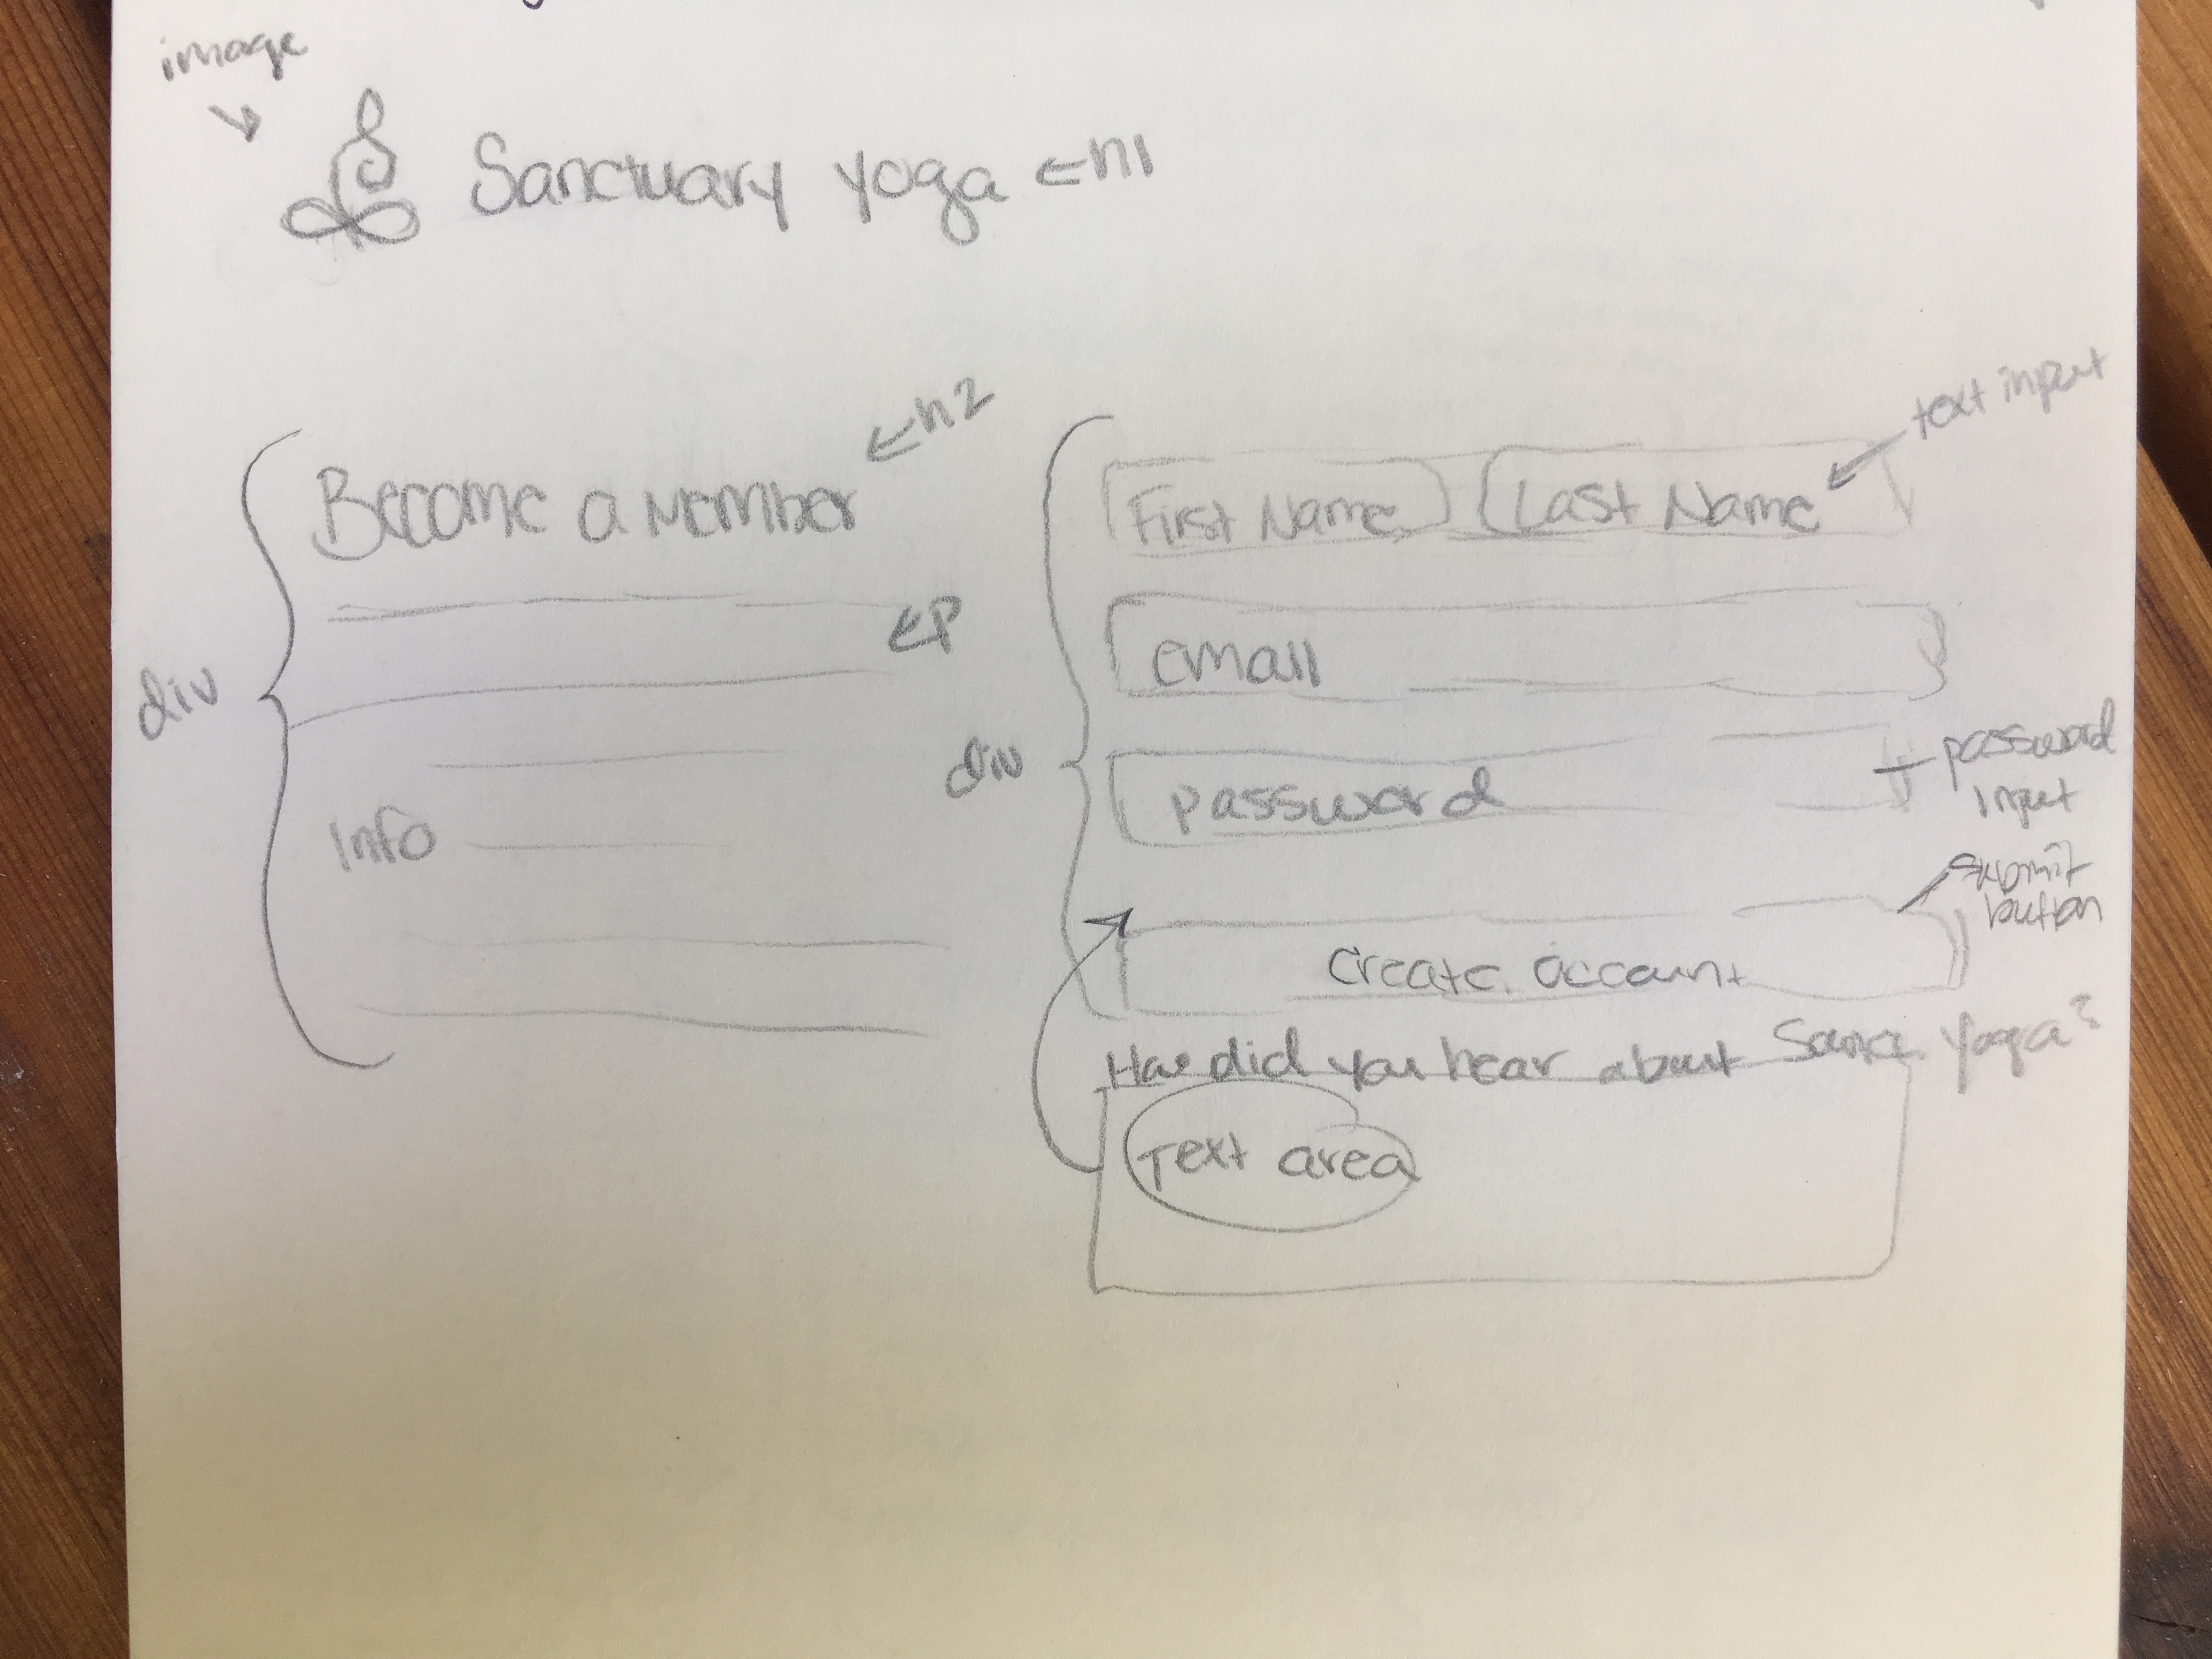 image
Sanctuary Yoga ← h1
Become a member
← h2
← P
div
Info
div
First Name
Last Name
text input
email
password
password
input
Create account
submit
button
How did you hear about Sanc. Yoga?
Text area